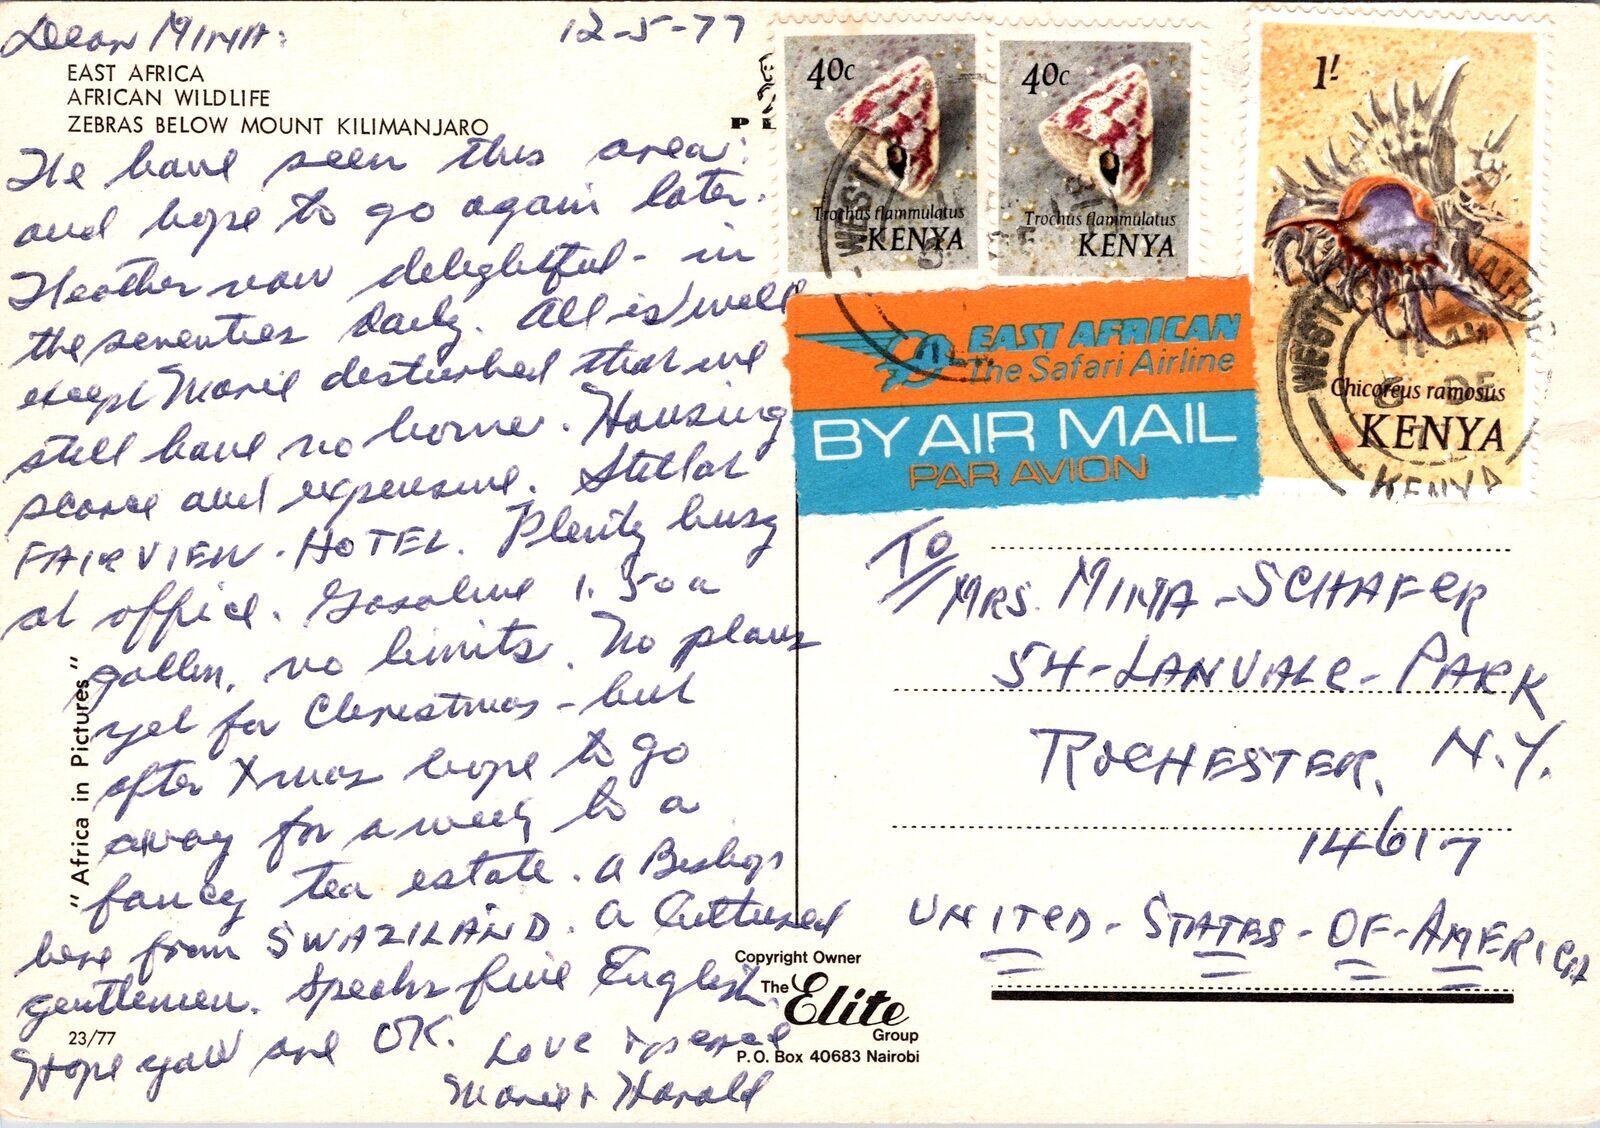 Dear MINA:
12-5-77
EAST AFRICA
AFRICAN WILDLIFE
ZEBRAS BELOW MOUNT KILIMANJARO
We have seen this area:
and hope to go again later.
Weather now delightful - in
the seventies daily. All is well
except Marie disturbed that we
still have no home. Housing
scarce and expensive. Still at
FAIRVIEW - HOTEL. Plenty busy
at office. Gasoline 1.50 a
gallon, no limits. No plans
yet for Christmas - but
after Xmas hope to go
away for a week to a
fancy tea estate. A Bishop
here from SWAZILAND. A Cultured
gentlemen. Speaks fine English.
Hope you are OK.
Love + peace
Marie + Harold
"Africa in Pictures"
23/77
Copyright Owner
The Elite
Group
P.O. Box 40683 Nairobi
40c
Trochus flammulatus
KENYA
40c
Trochus flammulatus
KENYA
1/-
Chicoreus ramosus
KENYA
WESTL
NAIROBI
WESTL
KENYA
EAST AFRICAN
The Safari Airline
BY AIR MAIL
PAR AVION
To
MRS. MINA - SCHAFER
54 - LANVALE - PARK
ROCHESTER, N.Y.
14617
UNITED - STATES - OF - AMERICA